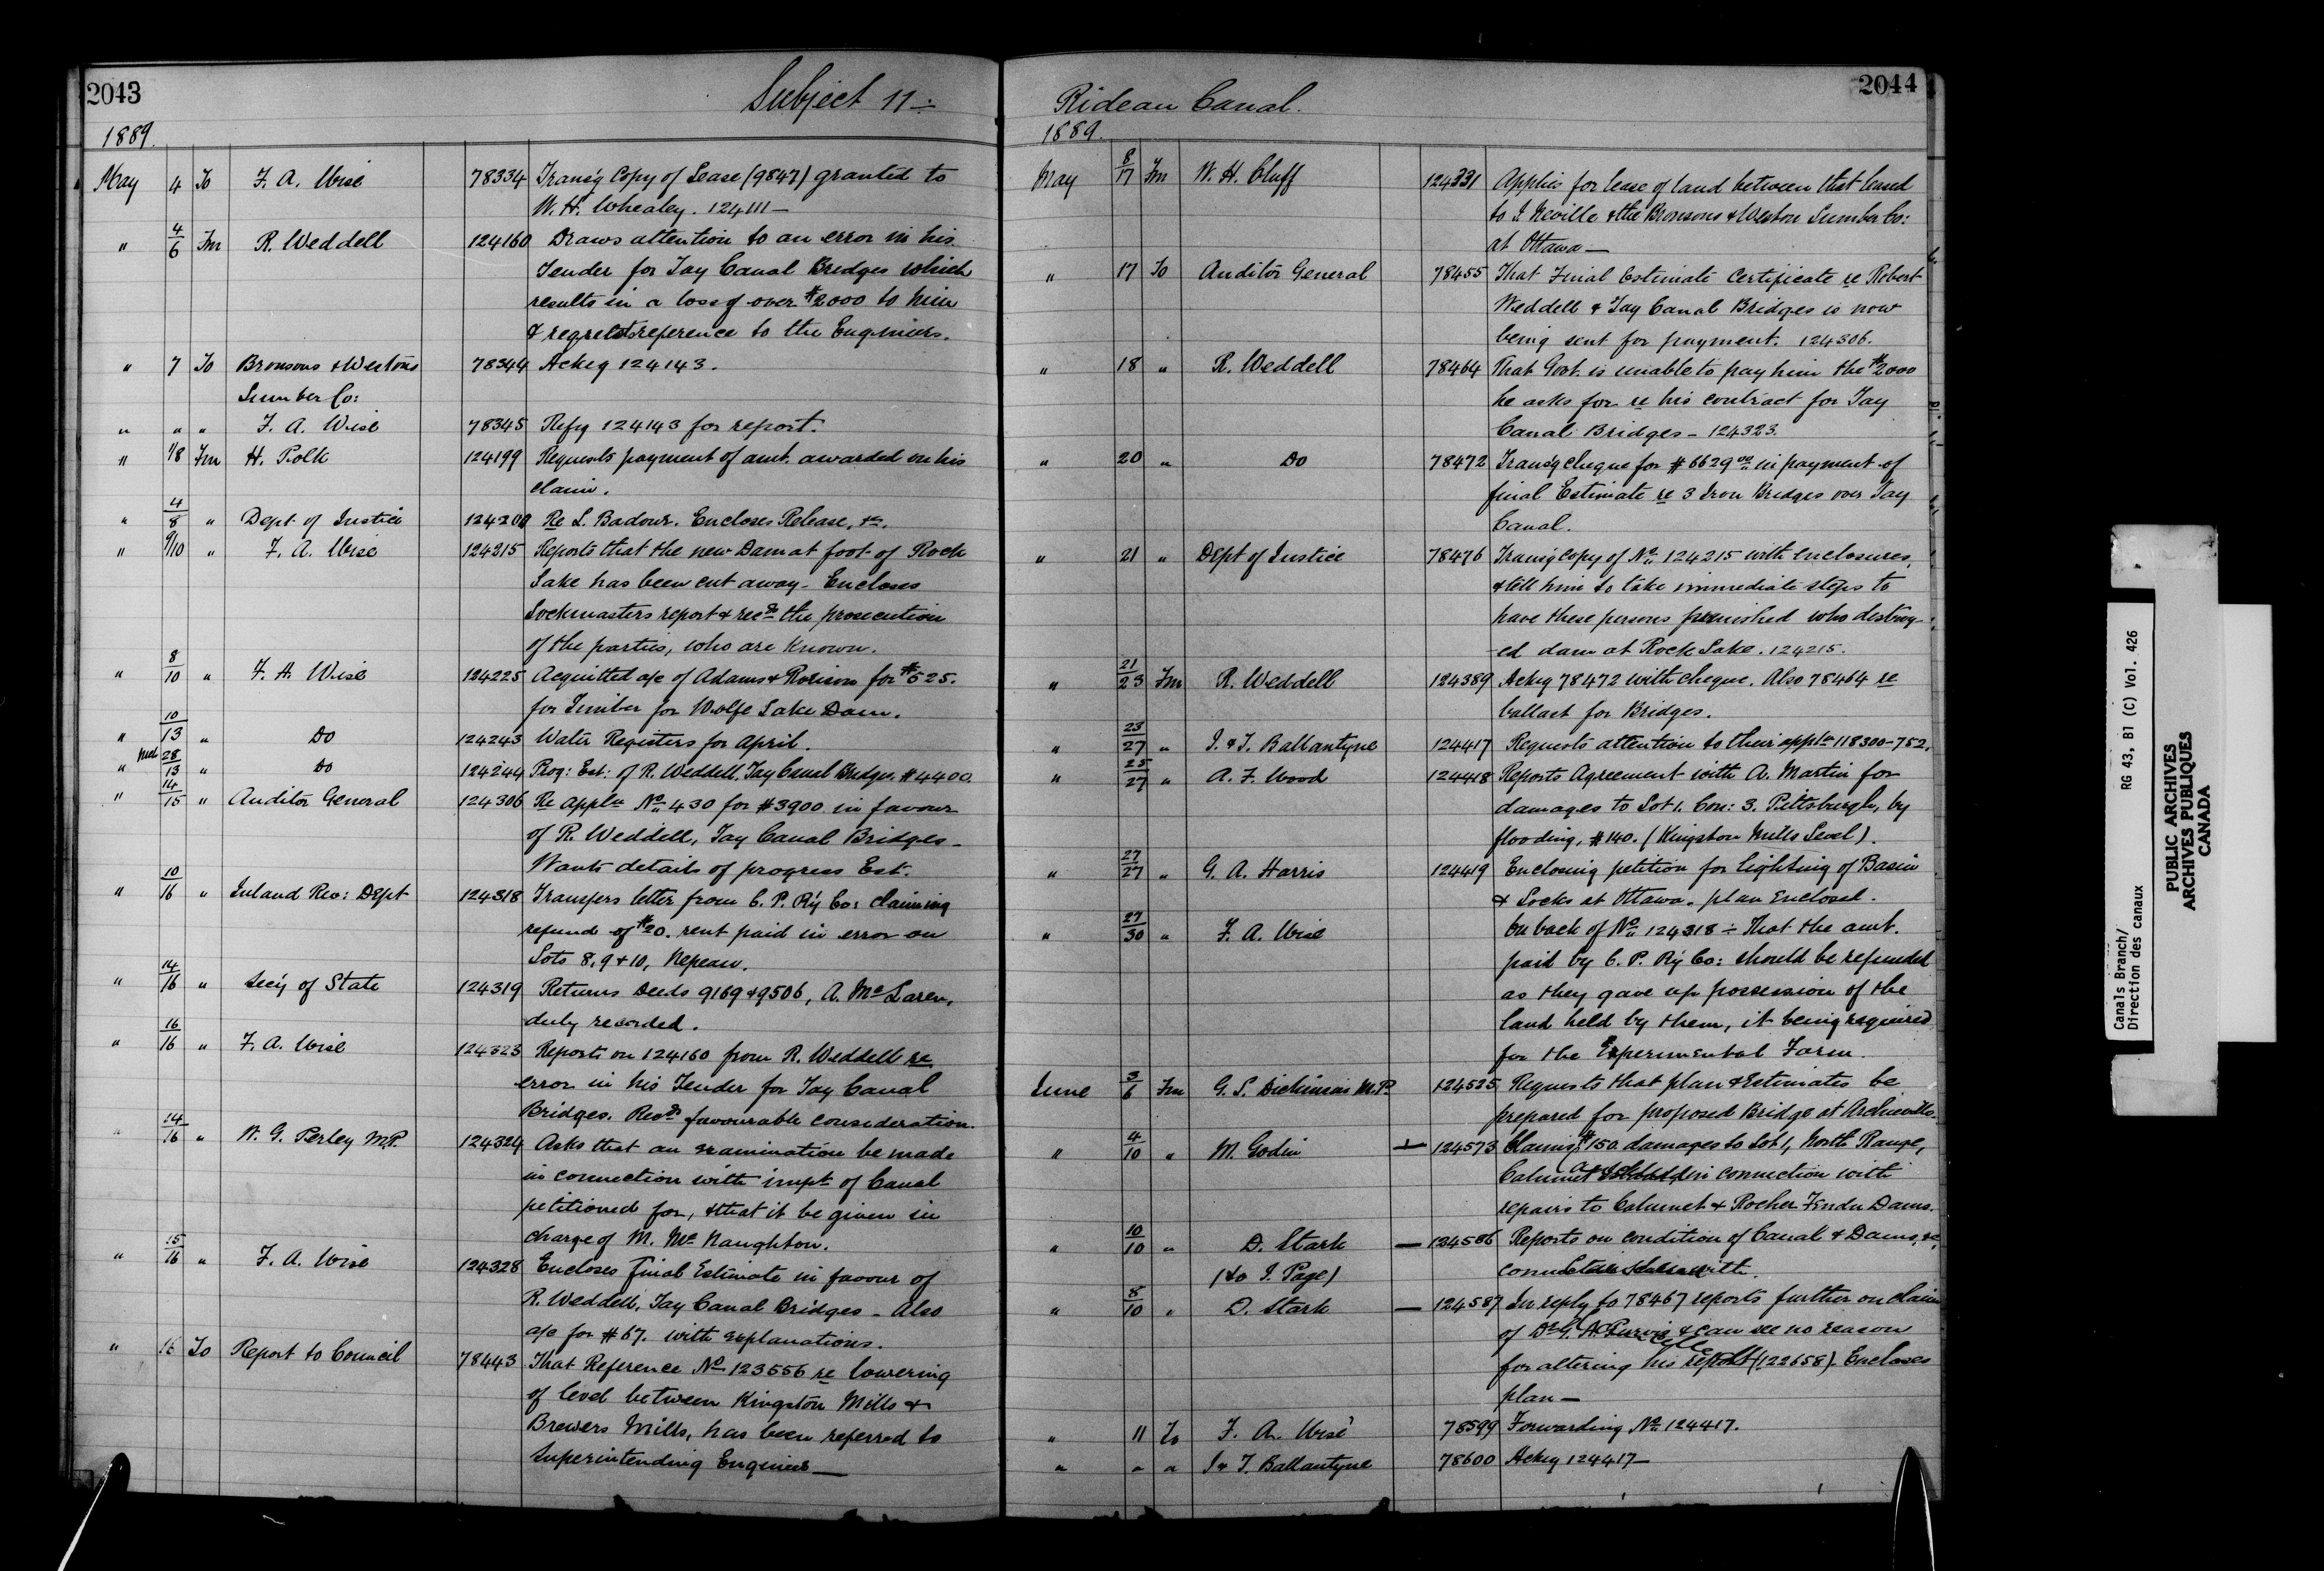 2043
Subject 11 -
1889.
May 4 To F. A. Wise 78334 Trans'g Copy of Lease (9847) granted to
W. H. Whealey. 124111 —
" 4/6 Fm R. Weddell 124160 Draws attention to an error in his
Tender for Tay Canal Bridges which
results in a loss of over $2000 to him
& reference to the Engineers.
" 7 To Bronsons & Westons 78344 Ackg 124143.
Lumber Co:
" " " F. A. Wise 78345 Refg 124143 for report.
" 1/8 Fm H. Polk 124199 Requests payment of amt. awarded on his
claim.
" 4/8 " Dept. of Justice Re L. Badour. Encloses Release, &c.
" 9/10 " F. A. Wise 124215 Reports that the new Dam at foot of Rock
Lake has been cut away - Encloses
Lockmasters report & recds the prosecution
of the parties, who are known.
" 8/10 " F. A. Wise 124225 Acquitted a/c of Adams & for $525.
for Timber for Wolfe Lake Dam.
" 10/13 " Do 124243 Water Registers for April.
" 28/13 " Do 124244 Prog: Est: of R. Weddell, Tay Canal Bridges. $4400
" 14/15 " Auditor General 124306 Re appln No. 430 for $3900 in favour
of R. Weddell, Tay Canal Bridges -
Wants details of progress Est.
" 10/16 " Inland Rev: Dept 124318 Transfers letter from C. P. Ry Co: claiming
refund of $20. rent paid in error on
Lots 8, 9 & 10, Nepean.
" 14/16 " Sec'y of State 124319 Returns Deeds 9169 & 9506, A. McLaren,
duly recorded.
" 16/16 " F. A. Wise 124323 Reports on 124160 from R. Weddell re
error in his Tender for Tay Canal
Bridges. Recds favourable consideration.
" 14/16 " W. G. Perley M.P. 124324 Asks that an examination be made
in connection with impt of Canal
petitioned for, & that it be given in
charge of M. McNaughton.
" 15/16 " F. A. Wise 124328 Encloses Final Estimate in favour of
R. Weddell, Tay Canal Bridges - Also
a/c for $67. with explanations.
" 16 To Report to Council 78443 That Reference No 123556 re lowering
of level between Kingston Mills &
Brewers Mills, has been referred to
Superintending Engineer —
2044
Rideau Canal.
1889.
May 8/17 Fm W. H. Cluff 124331 Applies for lease of land between that leased
to J. Neville & the Bronsons & Weston Lumber Co:
at Ottawa —
" 17 To Auditor General 78455 That Final Estimate Certificate re Robert
Weddell & Tay Canal Bridges is now
being sent for payment. 124306.
" 18 " R. Weddell 78464 That Govt. is unable to pay him the $2000
he asks for re his contract for Tay
Canal Bridges - 124323.
" 20 " Do 78472 Trans'g cheque for $6629 00 in payment of
final Estimate re 3 Iron Bridges over Tay
Canal.
" 21 " Dept of Justice 78476 Trans'g copy of No. 124215 with enclosures,
& tell him to take immediate steps to
have these persons punished who destroy-
ed dam at Rock Lake. 124215.
" 21/23 Fm R. Weddell 124389 Ackg 78472 with cheque. Also 78464 re
ballast for Bridges.
" 23/27 " J. & T. Ballantyne 124417 Requests attention to their appln 118300-752.
" 25/27 " A. F. Wood 124418 Reports Agreement with A. Martin for
damages to Lot 1. Con: 3. Pittsburgh, by
flooding, $140. (Kingston Mills Level).
" 27/27 " G. A. Harris 124419 Enclosing petition for lighting of Basin
& Locks at Ottawa. plan Enclosed.
" 27/30 " F. A. Wise On back of No. 124318 ÷ That the amt.
paid by C. P. Ry Co: should be refunded
as they gave up possession of the
land held by them, it being required
for the Experimental Farm.
June 3/6 Fm G. L. Dickinson M.P. 124525 Requests that plan & Estimates be
prepared for proposed Bridge at Archieville.
" 4/10 " M. Godin — 124573 Claims $150. damages to Lot 1, North Range,
Calumet in connection with
repairs to Calumet & Rocher Fendu Dams.
" 10/10 " D. Stark — 124586 Reports on condition of Canal & Dams, &c,
(to J. Page)
" 8/10 " D. Stark — 124587 In reply to 78467 reports further on claim
of Dr. G. & can see no reason
for altering his report (122658). Encloses
plan —
" 11 To F. A. Wise 78599 Forwarding No 124417.
" " " J & T. Ballantyne 78600 Ackg 124417 —
Canals Branch/
Direction des canaux
RG 43, B1 (C) Vol. 426
PUBLIC ARCHIVES
ARCHIVES PUBLIQUES
CANADA